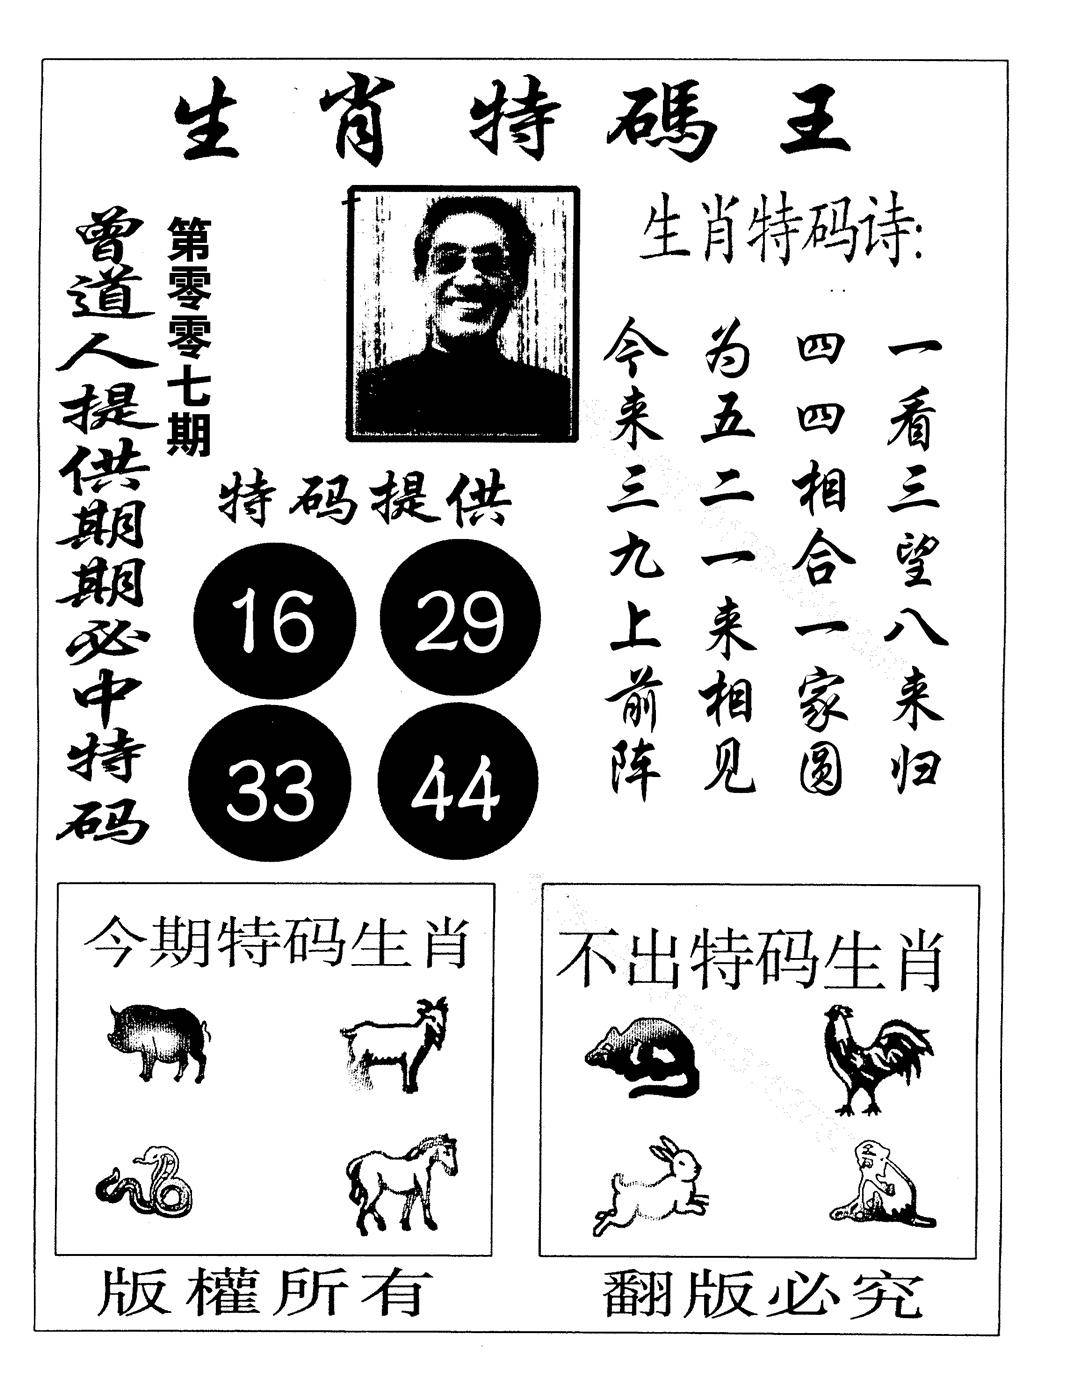 生肖特碼王
曾道人提供期期必中特码
第零零七期
生肖特码诗:
一看三望八来归
四四相合一家圆
为五二一来相见
今来三九上前阵
特码提供
16 29
33 44
今期特码生肖
不出特码生肖
版權所有
翻版必究